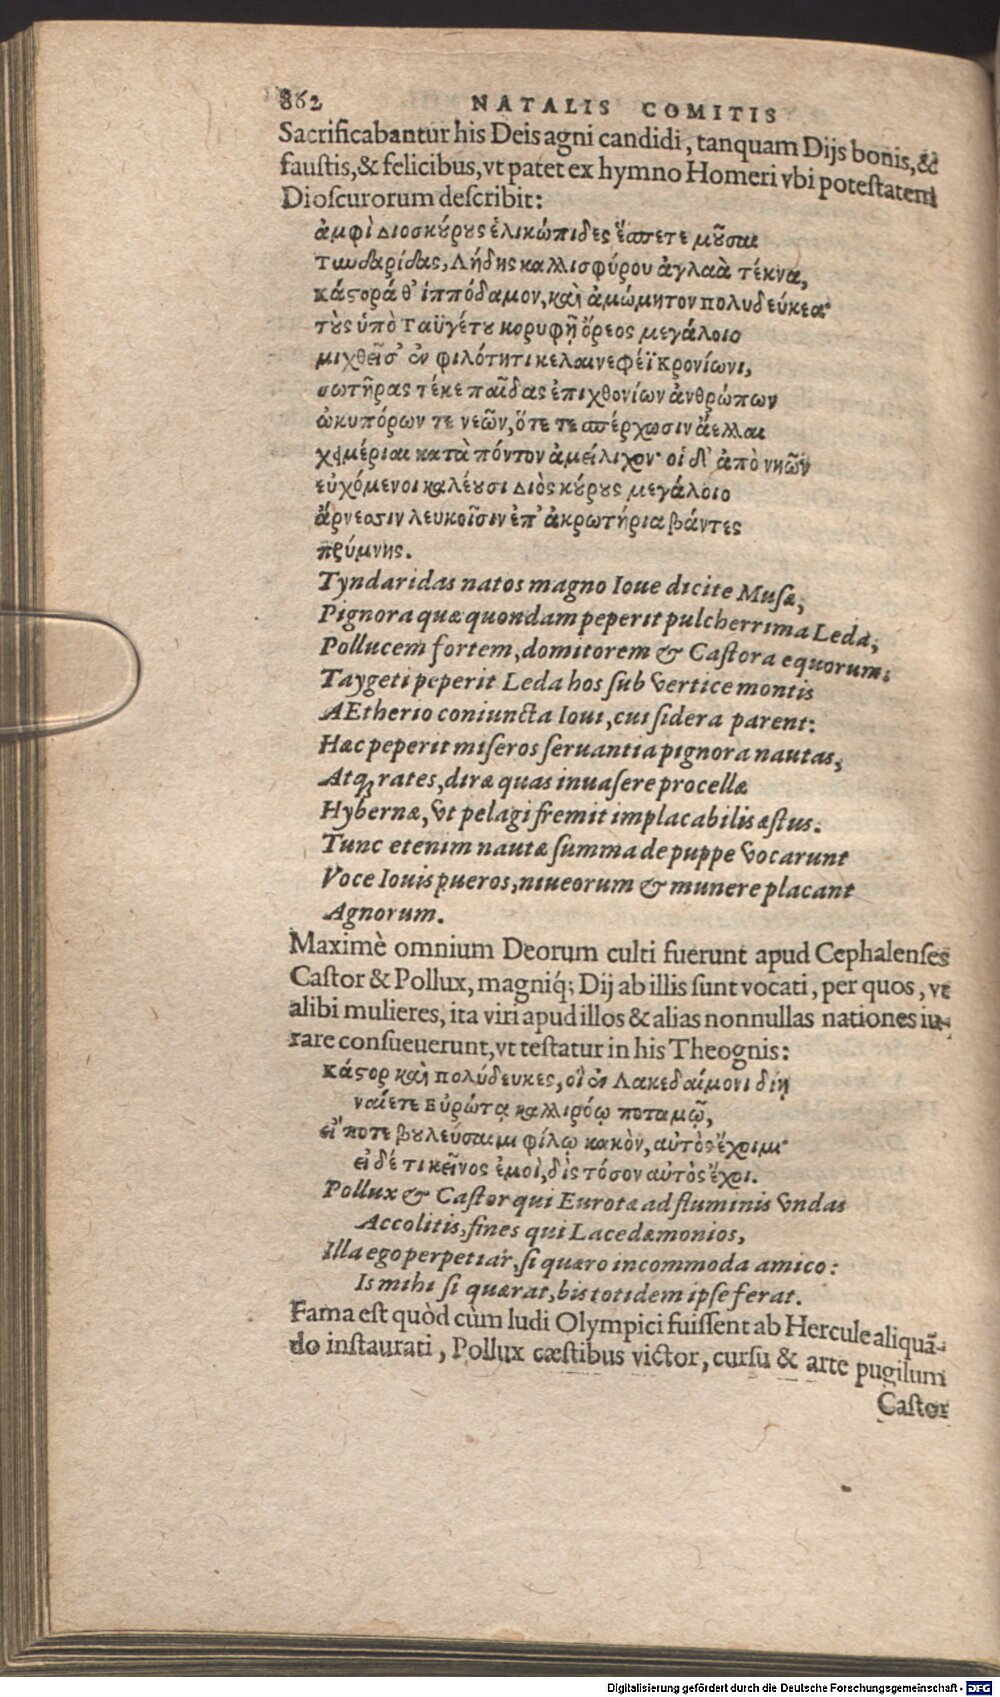 862 NATALIS COMITIS
Sacrificabantur his Deis agni candidi, tanquam Dijs bonis, &
faustis, & felicibus, vt patet ex hymno Homeri vbi potestatem
Dioscurorum describit:
ἀμφὶ Διοσκύρυς ἑλικώπιδες ἕσπετε μῦσαι
Τυνδαρίδας, Λήδης καλλισφύρου ἀγλαὰ τέκνα,
Κάστορά θ' ἱππόδαμον, καὶ ἀμώμητον πολυδεύκεα·
τὺς ὑπὸ Ταϋγέτυ κορυφῇ ὄρεος μεγάλοιο
μιχθεῖσ' ἐν φιλότητι κελαινεφέϊ Κρονίωνι,
σωτῆρας τέκε παῖδας ἐπιχθονίων ἀνθρώπων
ὠκυπόρων τε νεῶν, ὅτε τε σπέρχωσιν ἄελλαι
χειμέριαι κατὰ πόντον ἀμείλιχον· οἱ δ' ἀπὸ νηῶν
εὐχόμενοι καλέυσι Διὸς κύρυς μεγάλοιο
ἄρνεσσιν λευκοῖσιν ἐπ' ἀκρωτήρια βάντες
πρύμνης.
Tyndaridas natos magno Ioue dicite Musæ,
Pignora quæ quondam peperit pulcherrima Leda,
Pollucem fortem, domitorem & Castora equorum:
Taygeti peperit Leda hos sub vertice montis
AEtherio coniuncta Ioui, cui sidera parent:
Hæc peperit miseros seruantia pignora nautas,
Atq; rates, diræ quas inuasere procellæ
Hybernæ, vt pelagi fremit implacabilis æstus.
Tunc etenim nautæ summa de puppe vocarunt
Voce Iouis pueros, niueorum & munere placant
Agnorum.
Maximè omnium Deorum culti fuerunt apud Cephalenses
Castor & Pollux, magniq́; Dij ab illis sunt vocati, per quos, vt
alibi mulieres, ita viri apud illos & alias nonnullas nationes iu-
rare consueuerunt, vt testatur in his Theognis:
Κάστορ καὶ πολύδευκες, οἳ ἐν Λακεδαίμονι δίῃ
ναίετε Εὐρώτᾳ καλλιρόῳ ποταμῷ,
εἴ ποτε βυλεύσαιμι φίλῳ κακὸν, αὐτὸς ἔχοιμι·
εἰ δέ τι κεῖνος ἐμοὶ, δὶς τόσον αὐτὸς ἔχοι.
Pollux & Castor qui Eurotæ ad fluminis vndas
Accolitis, fines qui Lacedæmonios,
Illa ego perpetiar, si quæro incommoda amico:
Is mihi si quærat, bis totidem ipse ferat.
Fama est quòd cùm ludi Olympici fuissent ab Hercule aliquã-
do instaurati, Pollux cæstibus victor, cursu & arte pugilum
Castor
Digitalisierung gefördert durch die Deutsche Forschungsgemeinschaft - DFG